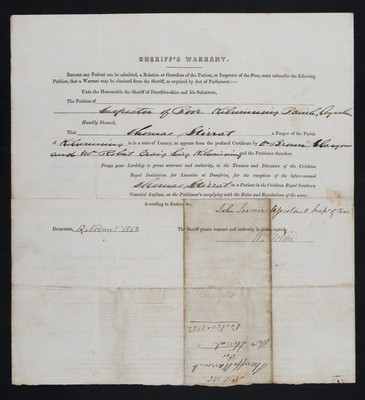 SHERIFF'S WARRANT.
BEFORE any Patient can be admitted, a Relation or Guardian of the Patient, or Inspector of the Poor, must subscribe the following
Petition, that a Warrant may be obtained from the Sheriff, as required by Act of Parliament :—
Unto the Honourable the Sheriff of Dumfries-shire and his Substitute,
The Petition of
Inspector of Poor Kilwinning Parish, Ayrshire
Humbly Sheweth,
That Thomas Stirrat a Pauper of the Parish
of Kilwinning is in a state of Lunacy, as appears from the prefixed Certificate by Dr
and Mr Robert Craig Surg. Kilwinning and the Petitioner therefore
Prays your Lordship to grant warrant and authority, to the Trustees and Directors of the Crichton
Royal Institution for Lunatics at Dumfries, for the reception of the before-named
Thomas Stirrat as a Patient in the Crichton Royal Southern
Counties' Asylum, on the Petitioner's complying with the Rules and Regulations of the same.
According to Justice, &c.
John Service Assistant Insp of Poor
DUMFRIES, 1852 The Sheriff grants warrant and authority in terms craved.
Sheriff's Warrant
for
Thos Stirrat
1852